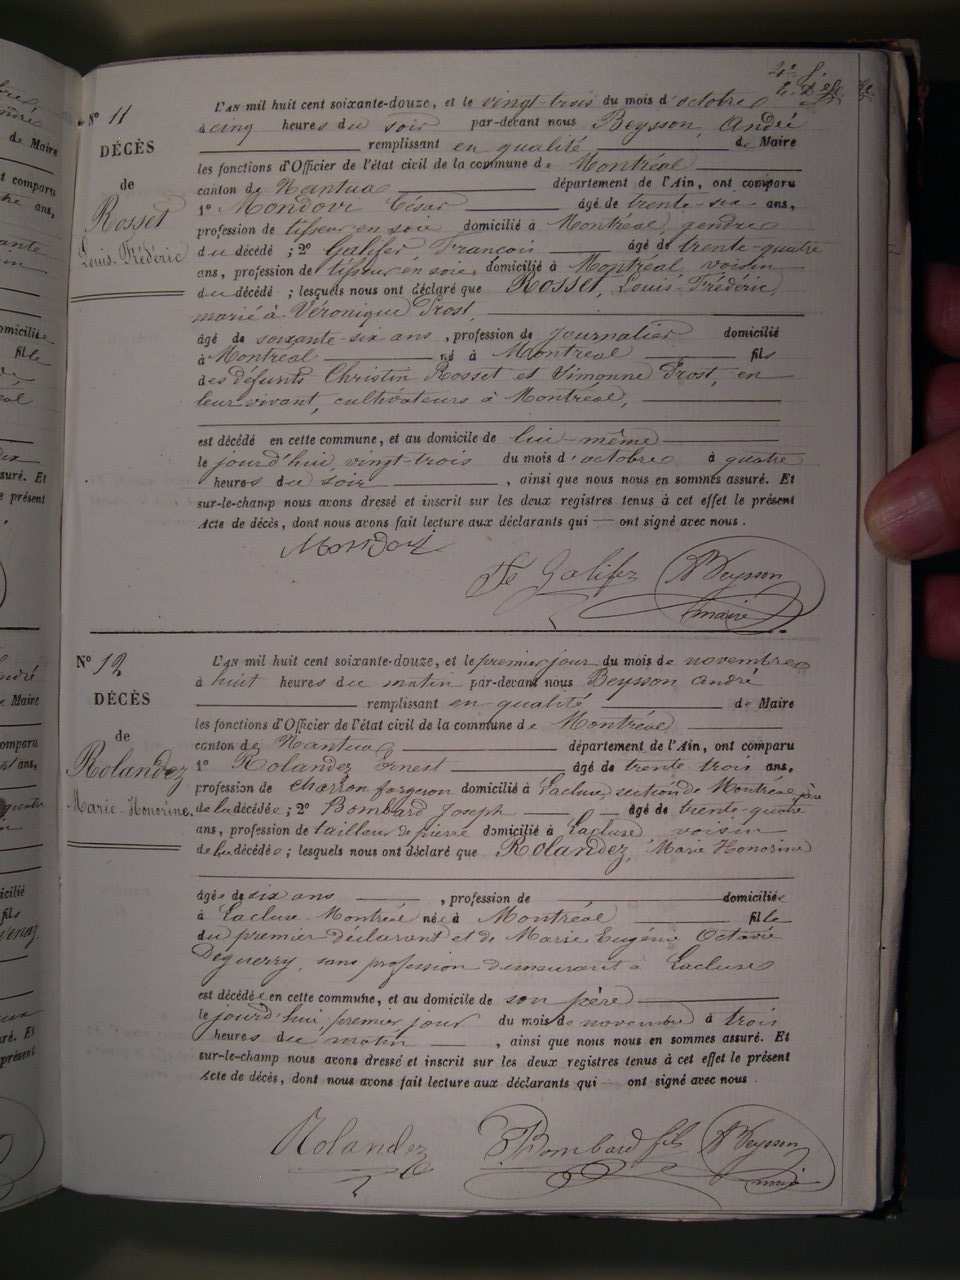 N° 11
DÉCÈS
de
Rosset
Louis-Frédéric
L'AN mil huit cent soixante-douze, et le vingt-trois du mois d'octobre
à cinq heures du soir par-devant nous Beysson, André
remplissant en qualité de Maire
les fonctions d'Officier de l'état civil de la commune de Montréal
canton de Nantua département de l'Ain, ont comparu
1° Mondovi César âgé de trente-six ans,
profession de tisseur en soie domicilié à Montréal, gendre
du décédé ; 2° Galifer, François âgé de trente-quatre
ans, profession de tisseur en soie, domicilié à Montréal, voisin
du décédé ; lesquels nous ont déclaré que Rosset, Louis-Frédéric,
marié à Véronique Prost,
âgé de soixante-six ans, profession de journalier domicilié
à Montréal né à Montréal fils
des défunts Christin Rosset et Simonne Prost, en
leur vivant, cultivateurs à Montréal,
est décédé en cette commune, et au domicile de lui-même
le jourd'hui vingt-trois du mois d'octobre à quatre
heures du soir, ainsi que nous nous en sommes assuré. Et
sur-le-champ nous avons dressé et inscrit sur les deux registres tenus à cet effet le présent
Acte de décès, dont nous avons fait lecture aux déclarants qui — ont signé avec nous.
Mondovi
Galifer
Beysson
maire
N° 12
DÉCÈS
de
Rolandez
Marie-Honorine.
L'AN mil huit cent soixante-douze, et le premier jour du mois de novembre
à huit heures du matin par-devant nous Beysson André
remplissant en qualité de Maire
les fonctions d'Officier de l'état civil de la commune de Montréal
canton de Nantua département de l'Ain, ont comparu
1° Rolandez Ernest âgé de trente trois ans,
profession de charron forgeron domicilié à Lacluse, section de Montréal père
de la décédée ; 2° Bombard Joseph âgé de trente-quatre
ans, profession de tailleur de pierre domicilié à Lacluse voisin
de la décédée ; lesquels nous ont déclaré que Rolandez, Marie Honorine
âgée de six ans, profession de domiciliée
à Lacluse-Montréal née à Montréal fille
du premier déclarant et de Marie Eugénie Octavie
Deguerry, sans profession demeurant à Lacluse
est décédée en cette commune, et au domicile de son père
le jourd'hui premier jour du mois de novembre à trois
heures du matin, ainsi que nous nous en sommes assuré. Et
sur-le-champ nous avons dressé et inscrit sur les deux registres tenus à cet effet le présent
Acte de décès, dont nous avons fait lecture aux déclarants qui — ont signé avec nous.
Rolandez
Bombard fils
Beysson
maire